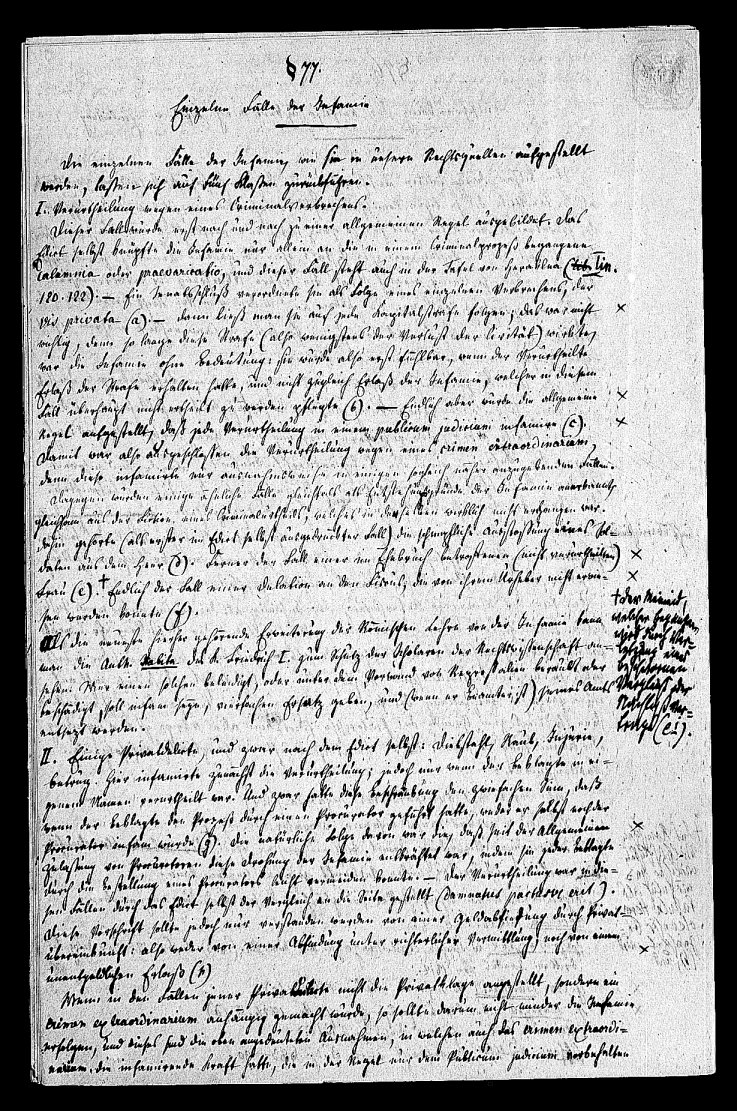 § 77.
Einzelne Fälle der Infamie
Die einzelnen Fälle der Infamie, wie sie in unsern Rechtsquellen aufgestellt
werden, lassen sich auf fünf Klassen zurückführen.
I. Verurtheilung wegen eines Criminalverbrechens.
Dieser Fall wurde erst nach und nach zu einer allgemeinen Regel ausgebildet. Das
Edict selbst knüpfte die Infamie nur allein an die in einem Criminalprozeß begangene
Calumnia oder praevaricatio, und dieser Fall steht auch in der Tafel von Heraclea (lin.
120. 122). – Ein Senatsschluß verordnete sie als Folge eines einzelnen Verbrechens, der
vis privata (a). – Dann ließ man sie auf jede Kapitalstrafe folgen; das war nicht
wichtig, denn so lange diese Strafe (also wenigstens der Verlust der Civität) wirkte,
war die Infamie ohne Bedeutung: sie wurde also erst fühlbar, wenn der Verurtheilte
Erlaß der Strafe erhalten hatte, und nicht zugleich Erlaß der Infamie, welcher in diesem
Fall überhaupt nicht ertheilt zu werden pflegte (b). – Endlich aber wurde die allgemeine
Regel aufgestellt, daß jede Verurtheilung in einem publicum judicium infamire (c).
Damit war also ausgeschlossen die Verurtheilung wegen eines crimen extraordinarium,
denn diese infamirte nur ausnahmsweise in einigen sogleich näher anzugebenden Fällen.
Dagegen wurden einige ähnliche Fälle gleichfalls als Entstehungsgründe der Infamie anerkannt,
gleichsam aus der Fiction eines Criminalurtheils, welches in denselben wirklich nicht ergangen war.
Dahin gehörte (als erster im Edict selbst ausgedrückter Fall) die schimpfliche Ausstoßung eines Sol-
daten aus dem Heer (d). Ferner der Fall einer im Ehebruch betroffenen (nicht verurtheilten)
Frau (e).† Endlich der Fall einer Delation an den Fiscus, die von ihrem Urheber nicht erwie-
sen werden konnte (f).
† der Meineid,
welcher begangen
wird durch Ver-
letzung eines
beschwornen
Vergleichs oder
Nachlaßver-
trags (e¹).
Als die neueste hierher gehörende Erweiterung der Römischen Lehre von der Infamie kann
man die Auth. Habita des K. Friedrich I. zum Schutz der Scholaren der Rechtswissenschaft an-
sehen. Wer einen solchen beleidigt, oder unter dem Vorwand von Repressalien beraubt oder
beschädigt, soll infam seyn, vierfachen Ersatz geben, und (wenn er Beamter ist) seines Amts
entsetzt werden.
II. Einige Privatdelicte, und zwar nach dem Edict selbst: Diebstahl, Raub, Injurie,
Betrug. Hier infamirte zunächst die Verurtheilung; jedoch nur wenn der Beklagte in ei-
genem Namen verurtheilt war. Und zwar hatte diese Beschränkung den zwiefachen Sinn, daß
wenn der Beklagte den Prozeß durch einen Procurator geführt hatte, weder er selbst noch der
Procurator infam wurde (g). Die natürliche Folge davon war die, daß seit der allgemeinen
Zulassung von Procuratoren diese Drohung der Infamie entkräftet war, indem sie jeder Beklagte
durch die Bestellung eines Procurators leicht vermeiden konnte. – Der Verurtheilung war in die-
sen Fällen durch das Edict selbst der Vergleich an die Seite gestellt (damnatus pactusve erit).
Diese Vorschrift sollte jedoch nur verstanden werden von einer Geldabfindung durch Privat-
übereinkunft: also weder von einer Abfindung unter richterlicher Vermittlung, noch von einem
unentgeldlichen Erlaß (h)
Wenn in den Fällen jener Privatdelicte nicht die Privatklage angestellt, sondern ein
crimen extraordinarium anhängig gemacht wurde, so sollte darum nicht minder die Infamie
erfolgen, und dieses sind die oben angedeuteten Ausnahmen, in welchen auch das crimen extraordi-
narium die infamirende Kraft hatte, die in der Regel nur dem publicum judicium vorbehalten